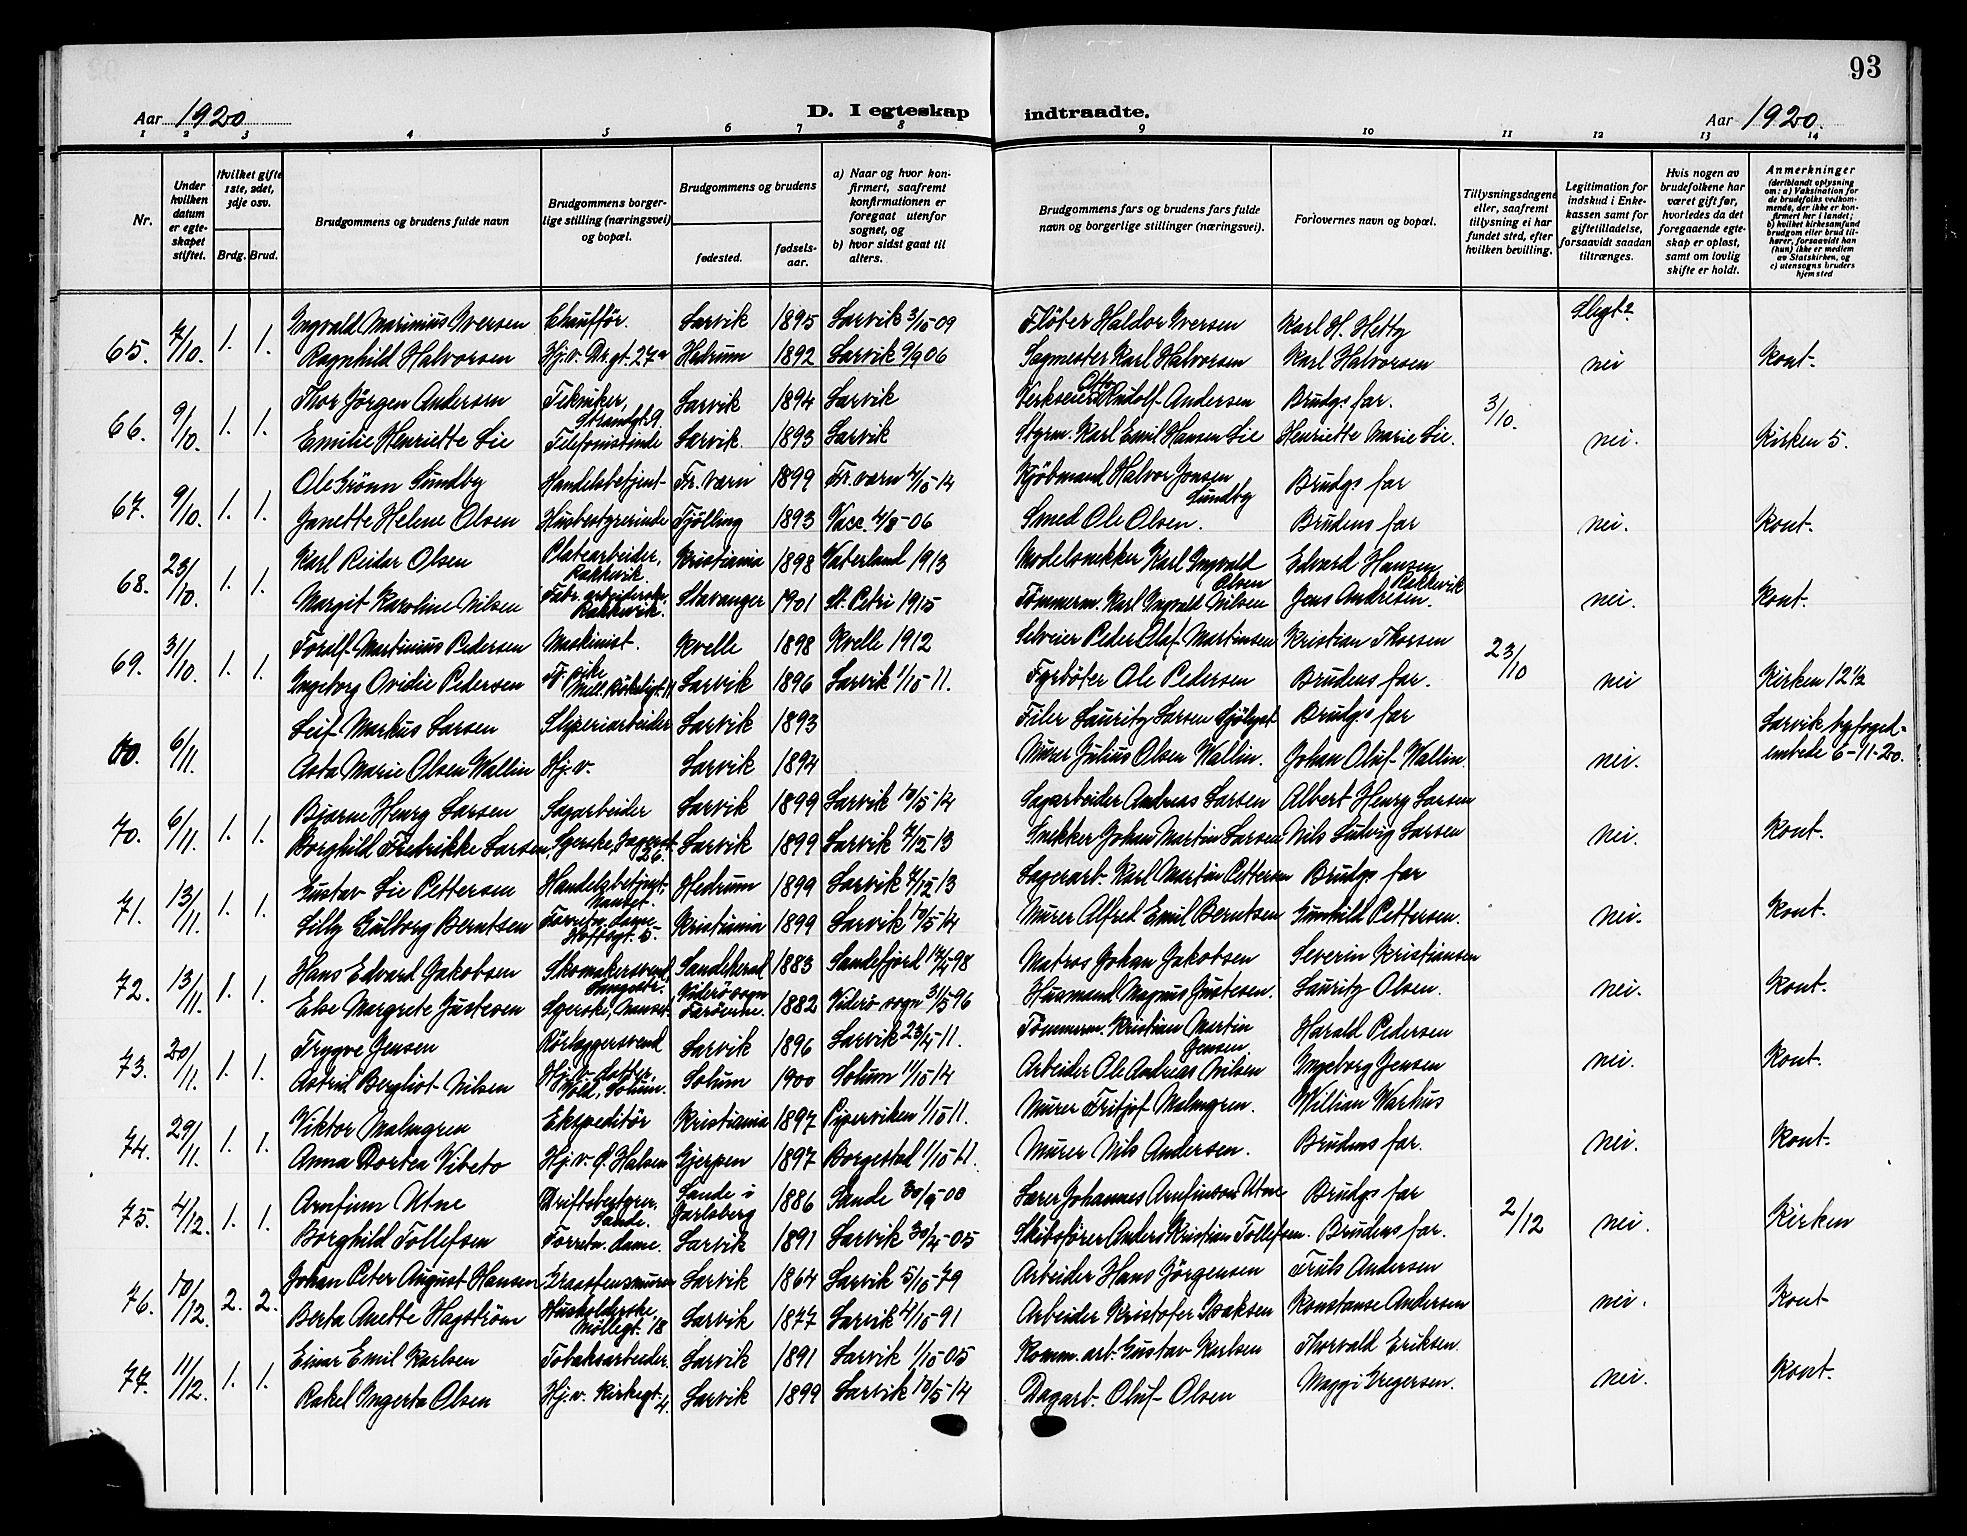 93
Aar 1920 D. I egteskap indtraadte. Aar 1920.
1 2 3 4 5 6 7 8 9 10 11 12 13 14
Nr.
Under hvilken datum er egteskapet stiftet.
Hvilket gifte 1ste, 2det, 3dje osv.
Brdg. Brud.
Brudgommens og brudens fulde navn
Brudgommens borgerlige stilling (næringsvei) og bopæl.
Brudgommens og brudens
fødested.
fødselsaar.
a) Naar og hvor konfirmert, saafremt konfirmationen er foregaat utenfor sognet, og
b) hvor sidst gaat til alters.
Brudgommens fars og brudens fars fulde navn og borgerlige stillinger (næringsvei).
Forlovernes navn og bopæl.
Tillysningsdagene eller, saafremt tillysning ei har fundet sted, efter hvilken bevilling.
Legitimation for indskud i Enkekassen samt for giftetilladelse, forsaavidt saadan tiltrænges.
Hvis nogen av brudefolkene har været gift før, hvorledes da det foregaaende egteskap er opløst, samt om lovlig skifte er holdt.
Anmerkninger (deriblandt oplysning om: a) Vaksination for de brudefolks vedkommende, der ikke er konfirmert her i landet; b) hvilket kirkesamfund brudgom eller brud tilhører, forsaavidt han (hun) ikke er medlem av Statskirken, og c) utensogns bruders hjemsted
Slegt?
65. 7/10. 1. 1. Ingvald Marinius Iversen Chauffør. Larvik 1895 Larvik 3/10 09 Fløter Haldor Iversen Karl H. Hetty
Ragnhild Halvorsen Hj. v. Drgt. 27a Hedrum 1892 Larvik 9/9 06 Sagmester Karl Halvorsen Karl Halvorsen nei Kont.
66. 9/10. 1. 1. Thor Jörgen Andersen Tekniker, Strandgt 9 Larvik 1894 Larvik Verkseier Otto Rudolf Andersen Brudgs far. 3/10.
Emilie Henriette Lie Telefonistinde Larvik. 1893 Larvik Styrm. Karl Emil Hansen Lie Henriette Marie Lie. nei. Kirken 5.
67. 9/10. 1. 1. Ole Grönn Sundby Handelsbetjent Fr. værn 1899 Fr. værn 4/10-14 Kjöbmand Halvor Jonsen Sundby Brudgs far
Janette Helene Olsen Husbestyrerinde Tjølling 1893 Vacc. 4/8-06 Smed Ole Olsen. Brudens far nei. Kont.
68. 23/10. 1. 1. Karl Reidar Olsen Platearbeider, Rakkevik. Kristiania 1898 Vaterland 1913 Modelsnekker Karl Ingvald Olsen Edvard Hansen Rakkevik
Margit Karoline Nilsen Fabr. arbeiderske Rakkevik. Stavanger 1901 St. Petri 1915 Tömmerm. Karl Ingvald Nilsen Jens Andresen. nei. Kont.
69. 31/10. 1. 1. Toralf Martinius Pedersen Maskinist. Kvelle 1898 Kvelle 1912 Selveier Peder Olaf Martinsen Kristian Thorsen 23/10
Ingeborg Ovidie Pedersen Tj. pike Larvik 1896 Larvik 1/10 11. Fyrböter Ole Pedersen Brudens far. nei Kirken 12 1/2
00. 6/11. Leif Markus Larsen Sliperiarbeider Larvik 1893 Filer Lauritz Larsen Sjölyst Brudgs far Larvik byfoged-
Asta Marie Olsen Wallin Hj. v. Larvik 1894 Murer Julius Olsen Wallin. Johan Oluf Wallin. nei. embede 6-11-20.
70. 6/11. 1. 1. Bjarne Henry Larsen Sagarbeider Larvik 1899 Larvik 10/5-14 Sagarbeider Andreas Larsen Albert Henry Larsen
Borghild Fredrikke Larsen, Syerske, 26. Larvik 1899 Larvik 7/12 13 Snekker Johan Martin Larsen Nils Ludvig Larsen nei. Kont.
71. 13/11. 1. 1. Gustav Lie Pettersen Handelsbetjent. Nanset. Hedrum 1899 Larvik 7/12 13 Lagerarb. Karl Martin Pettersen Brudgs far
Lilly Gulborg Berntsen Forretn. dame Hoffsgt. 5. Kristiania 1899 Larvik 10/5-14 Murer Alfred Emil Berntsen Gunhild Pettersen. nei. Kont.
72. 13/11. 1. 1. Hans Edvard Jakobsen Skomakersvend Sandeherad 1883 Sandefjord 17/4-98 Matros Johan Jakobsen Severin Kristiansen
Else Margrete Justesen Syerske, Nanset Viderö sogn Færöerne. 1882 Viderö sogn 31/5 96 Husmand Magnus Justesen. Lauritz Olsen. nei. Kont.
73. 20/11. 1. 1. Trygve Jensen Rörlæggersvend Larvik 1896 Larvik 23/4-11. Tömmerm. Kristian Martin Jensen Harald Pedersen
Astrid Bergliot Nilsen Hj. v. Solum 1900 Solum 1/10 14 Arbeider Ole Andreas Nilsen Ingeborg Jensen nei. Kont.
74. 29/11. 1. 1. Viktor Malmgren Ekspeditör Kristiania 1897 Piperviken 1/10 11. Murer Fritjof Malmgren. Willian Warhus
Anna Dortea Vibeto Hj. v. Ö. Halsen Gjerpen 1897 Borgestad 1/10-11. Murer Nils Andersen. Brudens far. nei. Kont.
75. 4/12. 1. 1. Arnfinn Utne Driftsbestyrer, Sande. Sande i Jarlsberg 1886 Sande 30/9-00 Lærer Johannes Arnfinson Utne Brudgs far 2/12
Borghild Tollefsen Forretn. dame. Larvik 1891 Larvik 30/4-05 Skibsförer Anders Kristian Tollefsen. Brudens far. nei. Kirken
76. 10/12. 2. 2. Johan Peter August Hansen Graastensmurer Larvik 1864 Larvik 5/10-79 Arbeider Hans Jörgensen Truls Andersen
Berta Anette Hagström Husholderske, Möllegt. 18 Larvik 1877 Larvik 4/10-91 Arbeider Kristofer Isaksen Konstanse Andersen nei. Kont-
77. 11/12. 1. 1. Einar Emil Karlsen Tobaksarbeider. Larvik 1891 Larvik 1/10-05 Komm. arb. Gustav Karlsen Thorvald Eriksen.
Rakel Ingerta Olsen Hj. v. Kirkegt. 4. Larvik 1899 Larvik 10/5-14 Dagarb. Oluf Olsen Maggi Gregersen. nei. Kont.